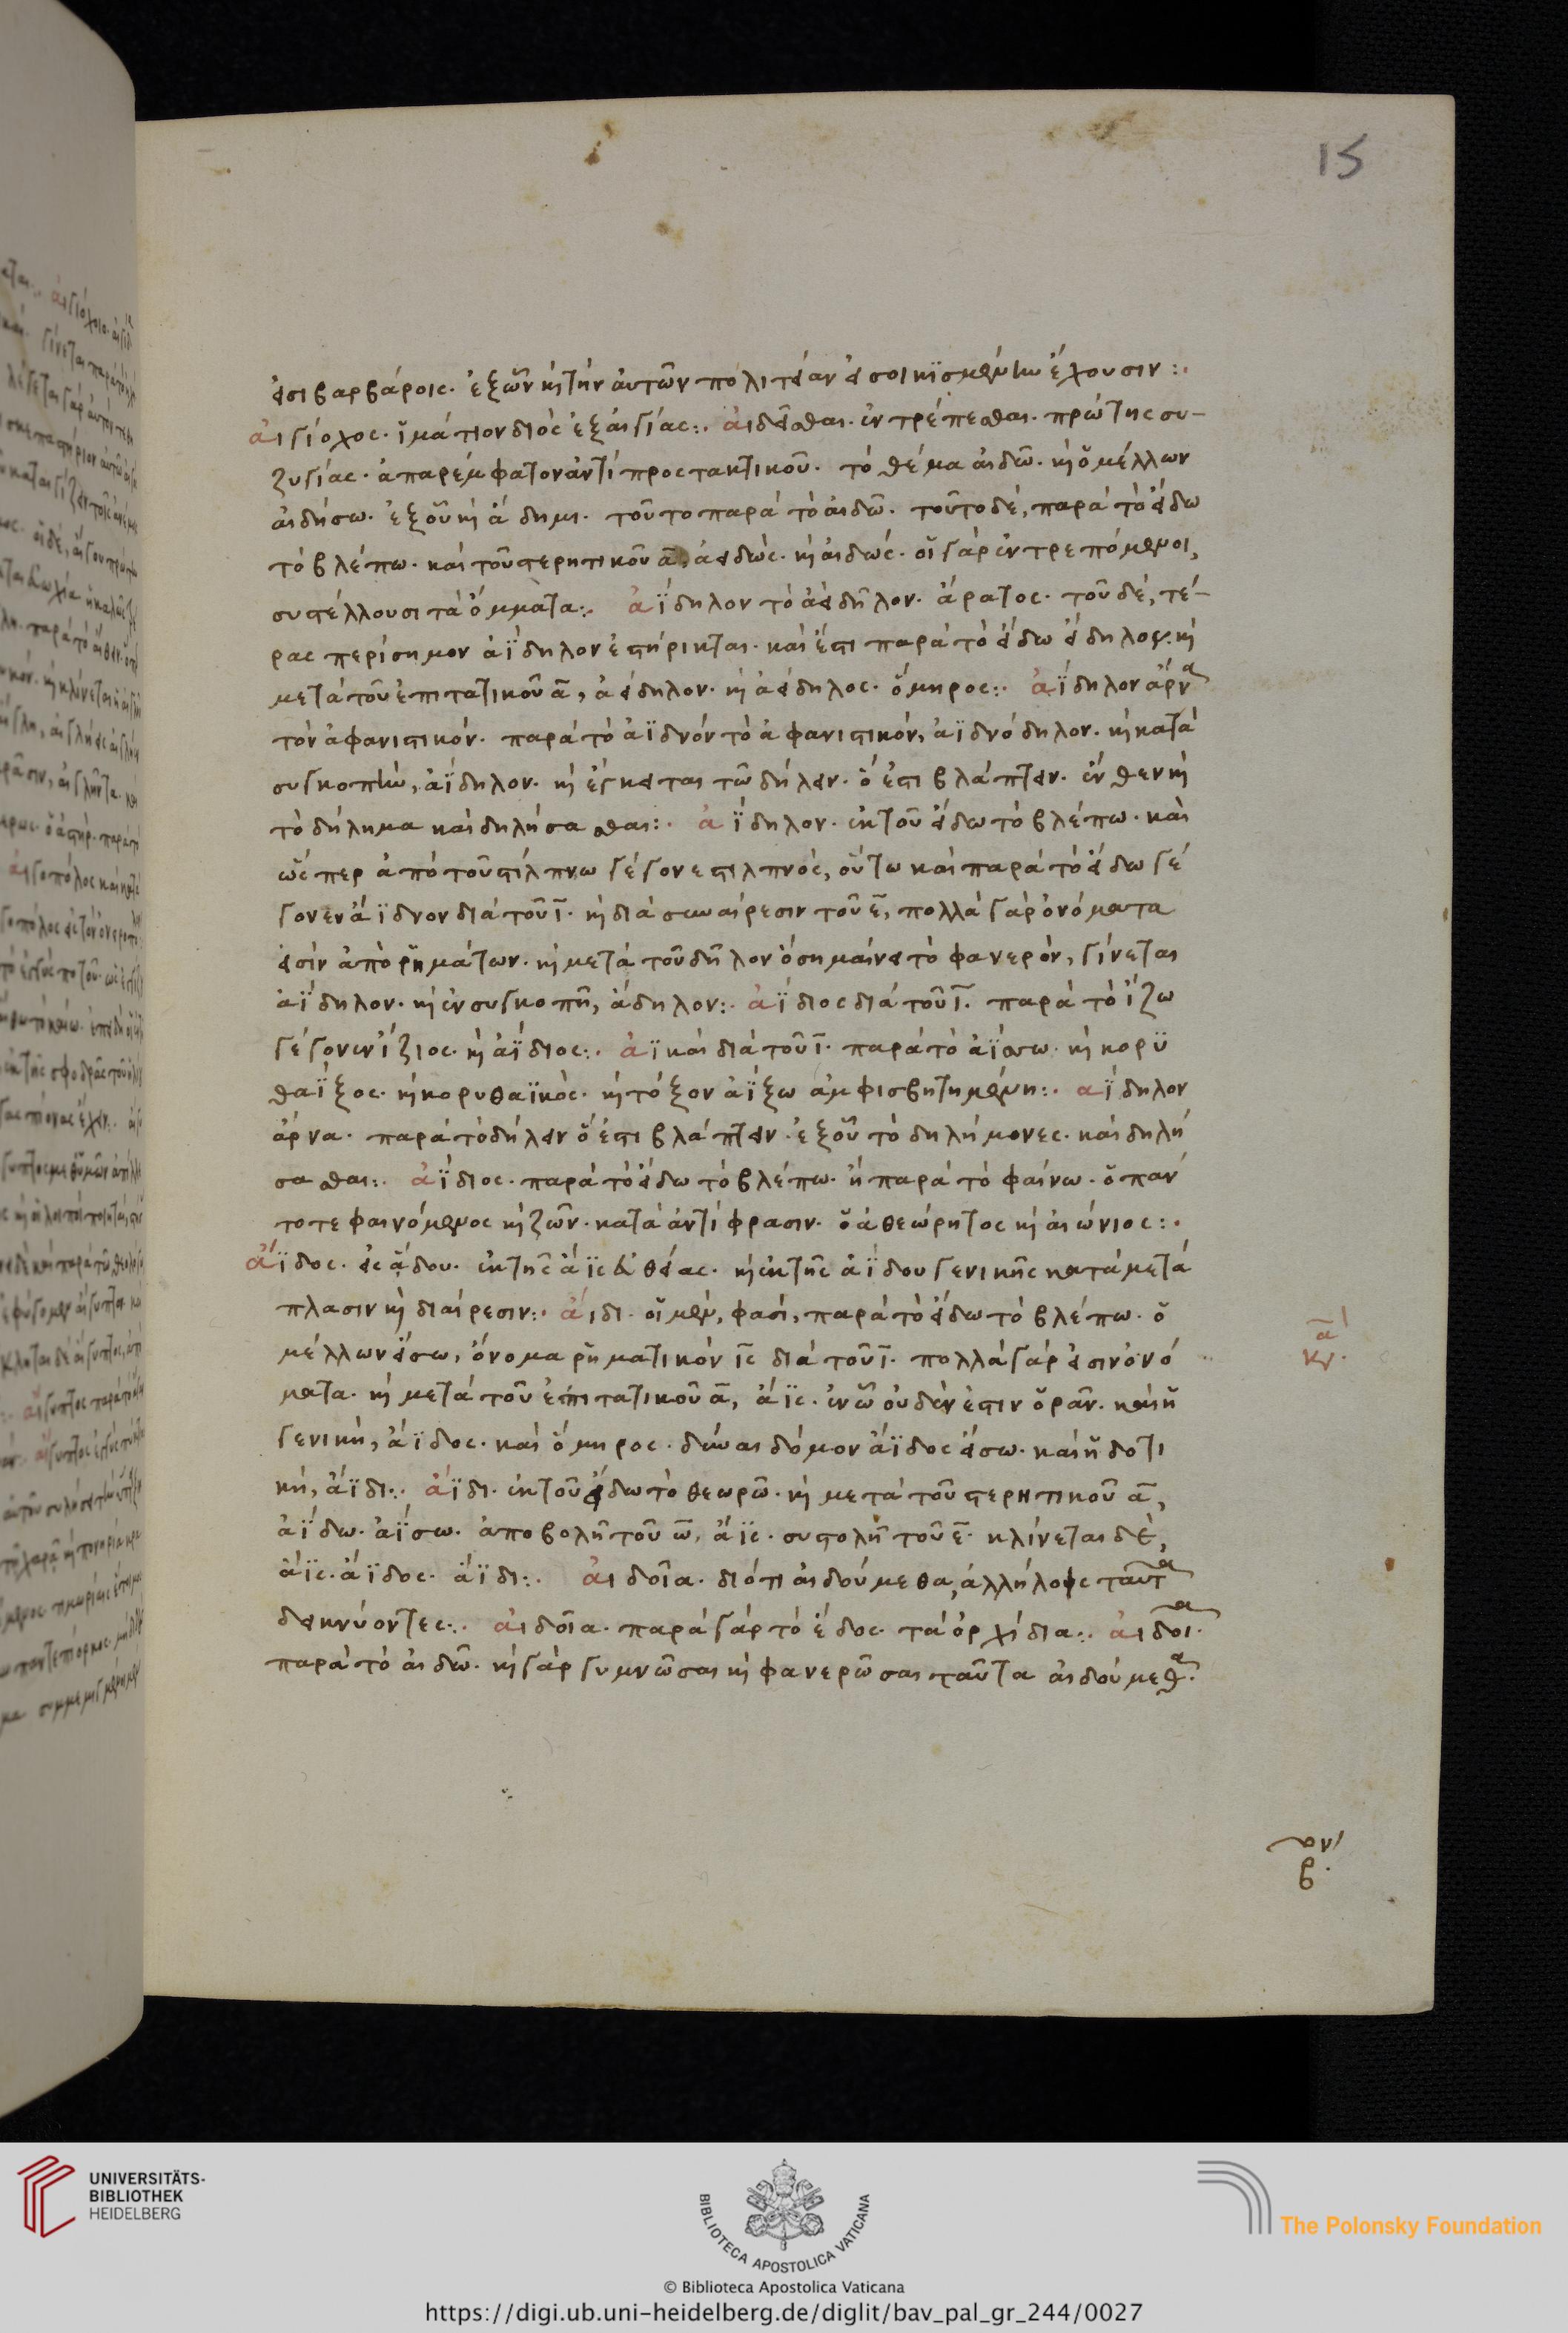 15
εἰσι βαρβάροις. ἐξ ὧν καὶ τὴν αὐτῶν πολιτείαν
ἔχουσιν:.
αἰγίοχος. ἱμάτιον διὸς ἐξ αἰγίας:. αἰδεῖσθαι. ἐντρέπεσθαι. πρώτης συ-
ζυγίας. ἀπαρέμφατον ἀντὶ προστακτικοῦ. τὸ θέμα αἰδῶ. καὶ ὁ μέλλων
αἰδήσω. ἐξ οὗ καὶ τοῦτο παρὰ τὸ αἰδῶ. τοῦτο δέ, παρὰ τὸ εἴδω
τὸ βλέπω. καὶ τοῦ στερητικοῦ α, ἀειδώς. καὶ αἰδώς. οἱ γὰρ ἐντρεπόμενοι,
συστέλλουσι τὰ ὄμματα:. ἀΐδηλον τὸ ἀείδηλον. ἄρατος. τοῦ δέ, τέ-
ρας περίσημον ἀΐδηλον ἐστήρικται. καὶ ἔστι παρὰ τὸ εἴδω εἴδηλος. καὶ
μετὰ τοῦ ἐπιτατικοῦ α, ἀείδηλον. καὶ ἀείδηλος. ὅμηρος:. ἀΐδηλον ἄρνα
τὸν ἀφανιστικόν. παρὰ τὸ ἀϊδνὸν τὸ ἀφανιστικόν, ἀϊδνόδηλον. καὶ κατὰ
συγκοπὴν, ἀΐδηλον. καὶ ἔγκειται τῷ δήλειν. ὅ ἐστι βλάπτειν. ἔνθεν καὶ
τὸ δήλημα καὶ δηλήσασθαι:. ἀΐδηλον. ἐκ τοῦ εἴδω τὸ βλέπω. καὶ
ὥσπερ ἀπὸ τοῦ στίλπνω γέγονε στιλπνός, οὕτω καὶ παρὰ τὸ εἴδω γέ
γονεν ἄϊδνον διὰ τοῦ ι. καὶ διὰ συναίρεσιν τοῦ ε, πολλὰ γὰρ ὀνόματα
εἰσὶν ἀπὸ ῥημάτων. καὶ μετὰ τοῦ δῆλον ὃ σημαίνει τὸ φανερόν, γίνεται
ἀΐδηλον. καὶ ἐν συγκοπῆ, ἄδηλον:. ἀΐδιος διὰ τοῦ ι. παρὰ τὸ ἵζω
γέγονεν ἵζιος. καὶ ἀΐδιος:. ἀϊ καὶ διὰ τοῦ ι. παρὰ τὸ ἀΐσσω. καὶ κορυ
θάϊξος. καὶ κορυθαϊκὸς. καὶ τόξον ἀΐξω ἀμφισβητημένη:. ἀΐδηλον
ἄρνα. παρὰ τὸ δήλειν ὅ ἐστι βλάπτειν. ἐξ οὗ τὸ δηλήμονες. καὶ δηλή
σασθαι:. ἀΐδιος. παρὰ τὸ εἴδω τὸ βλέπω. ἢ παρὰ τὸ φαίνω. ὁ παν
τοτε φαινόμενος καὶ ζῶν. κατὰ ἀντίφρασιν. ὁ ἀθεώρητος καὶ αἰώνιος:.
ἄϊδος. εἰς ᾅδου. ἐκ τῆς ἄϊς εὐθείας. καὶ ἐκ τῆς ἀΐδου γενικῆς κατὰ μετα
πλασιν καὶ διαίρεσιν:. ἄϊδι. οἱ μέν, φασί, παρὰ τὸ εἴδω τὸ βλέπω. ὁ
μέλλων εἴσω, ὄνομα ῥηματικόν ις διὰ τοῦ ι. πολλὰ γάρ εἰσιν ὀνό
ματα. καὶ μετὰ τοῦ ἐπιτατικοῦ α, ἄϊς. ἐν ᾧ οὐδέν ἐστιν ὁρᾶν. καὶ ἡ
γενική, ἄϊδος. καὶ ὅμηρος. δῦναι δόμον ἄϊδος εἴσω. καὶ ἡ δοτι
κή, ἄϊδι:. ἄϊδι. ἐκ τοῦ εἴδω τὸ θεωρῶ. καὶ μετὰ τοῦ στερητικοῦ α,
ἀΐδω. ἀΐσω. ἀποβολῆ τοῦ ω, ἄϊς. συστολῆ τοῦ ε. κλίνεται δὲ,
ἄϊς. ἄϊδος. ἄϊδι:. αἰδοῖα. διότι αἰδούμεθα, ἀλλήλοις ταῦτα
δεικνύοντες:. αἰδοῖα. παρὰ γὰρ τὸ ἕδος. τὰ ὀρχίδια:. αἰδοῖα.
παρὰ τὸ αἰδῶ. καὶ γὰρ γυμνῶσαι καὶ φανερῶσαι ταῦτα αἰδούμεθα.
UNIVERSITÄTS-
BIBLIOTHEK
HEIDELBERG
BIBLIOTECA APOSTOLICA VATICANA
The Polonsky Foundation
© Biblioteca Apostolica Vaticana
https://digi.ub.uni-heidelberg.de/diglit/bav_pal_gr_244/0027